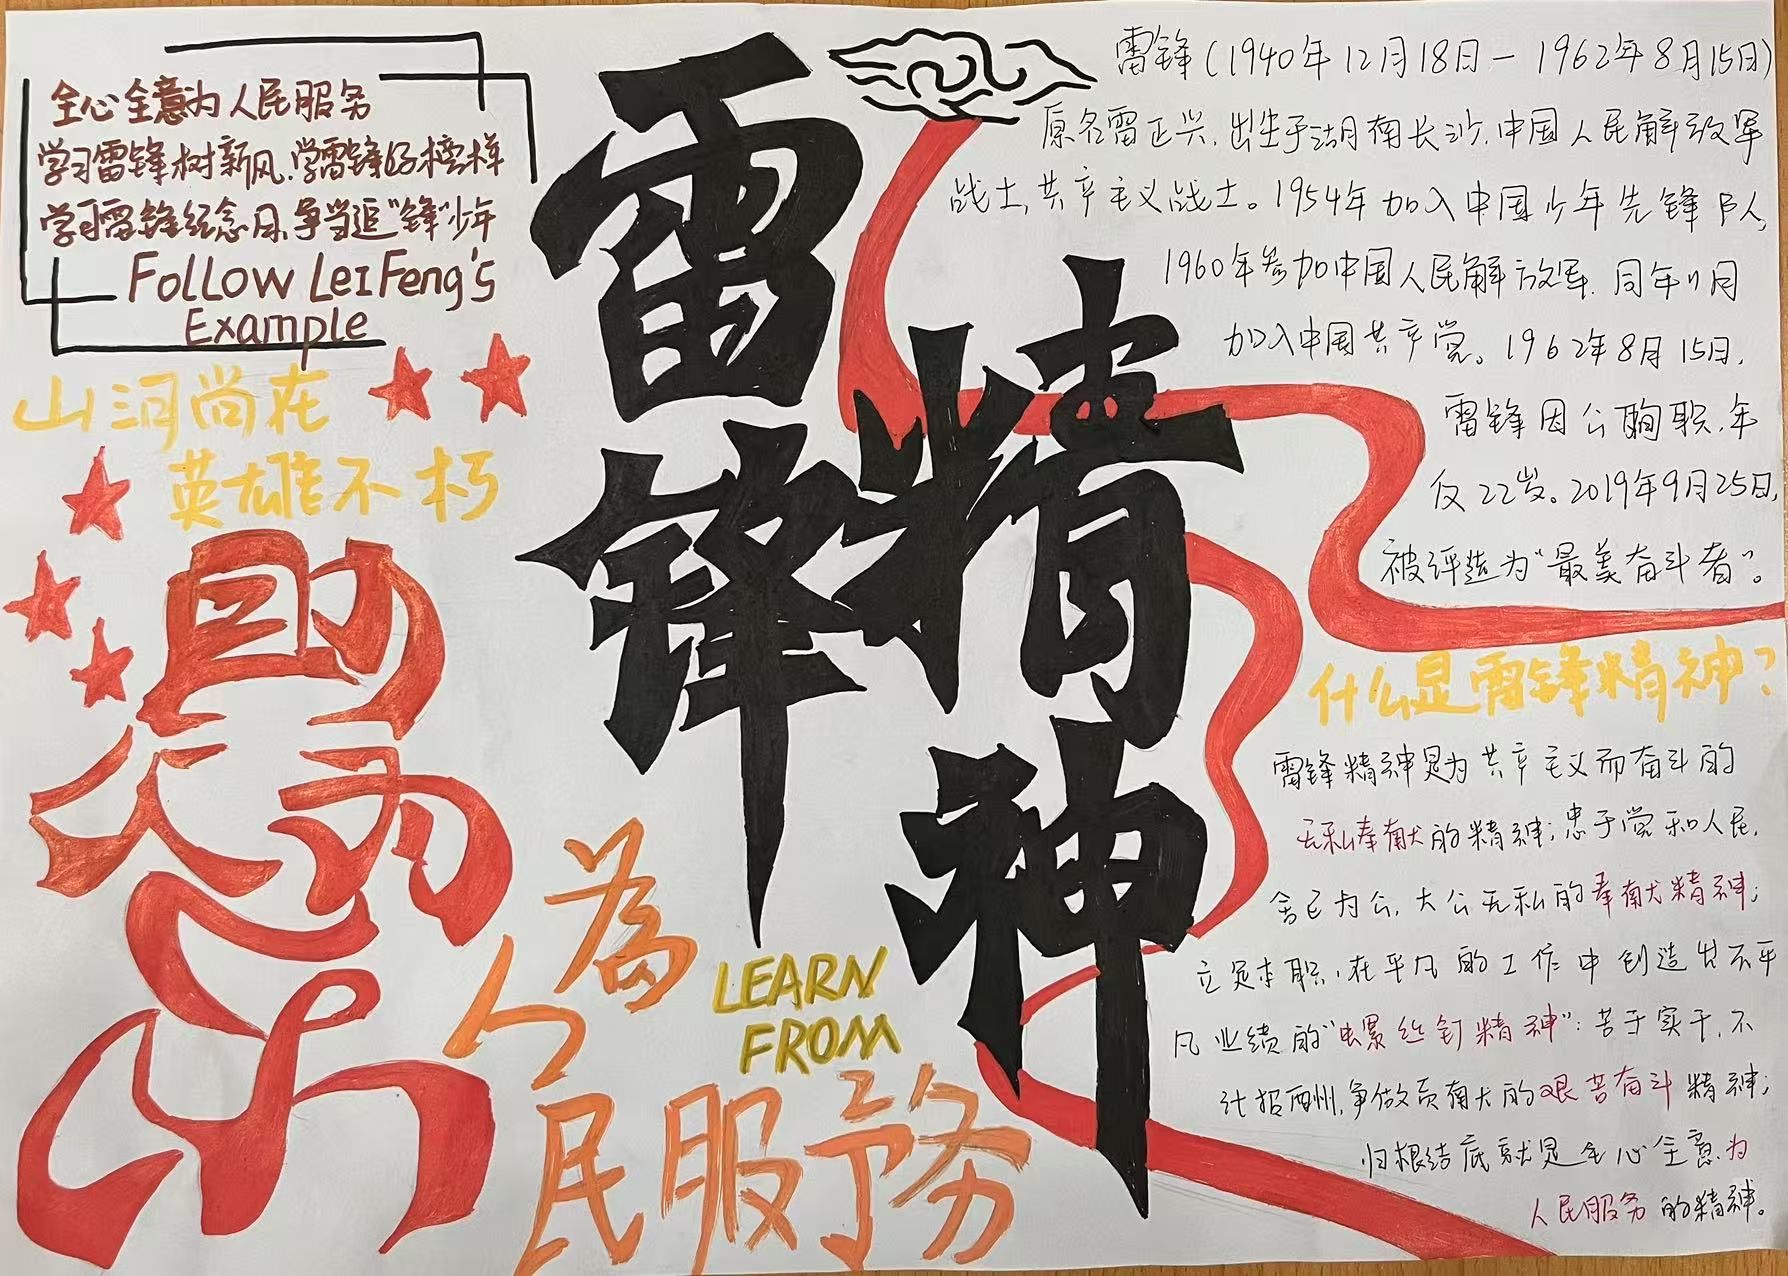 全心全意为人民服务
学习雷锋树新风.学雷锋好榜样
学习雷锋纪念日,争当追"锋"少年
Follow LeiFeng's
Example
山河尚在
英雄不朽
助人为乐
雷锋
精神
為
人
民服務
LEARN
FROM
雷锋(1940年12月18日－1962年8月15日)
原名雷正兴,出生于湖南长沙,中国人民解放军
战士,共产主义战士。1954年加入中国少年先锋队,
1960年参加中国人民解放军,同年11月
加入中国共产党。1962年8月15日,
雷锋因公殉职,年
仅22岁。2019年9月25日,
被评选为"最美奋斗者"。
什么是雷锋精神?
雷锋精神是为共产主义而奋斗的
无私奉献的精神;忠于党和人民,
舍己为公,大公无私的奉献精神;
立足本职,在平凡的工作中创造出不平
凡业绩的"螺丝钉精神":苦于实干,不
计报酬,争做贡献的艰苦奋斗精神;
归根结底就是全心全意为
人民服务的精神。